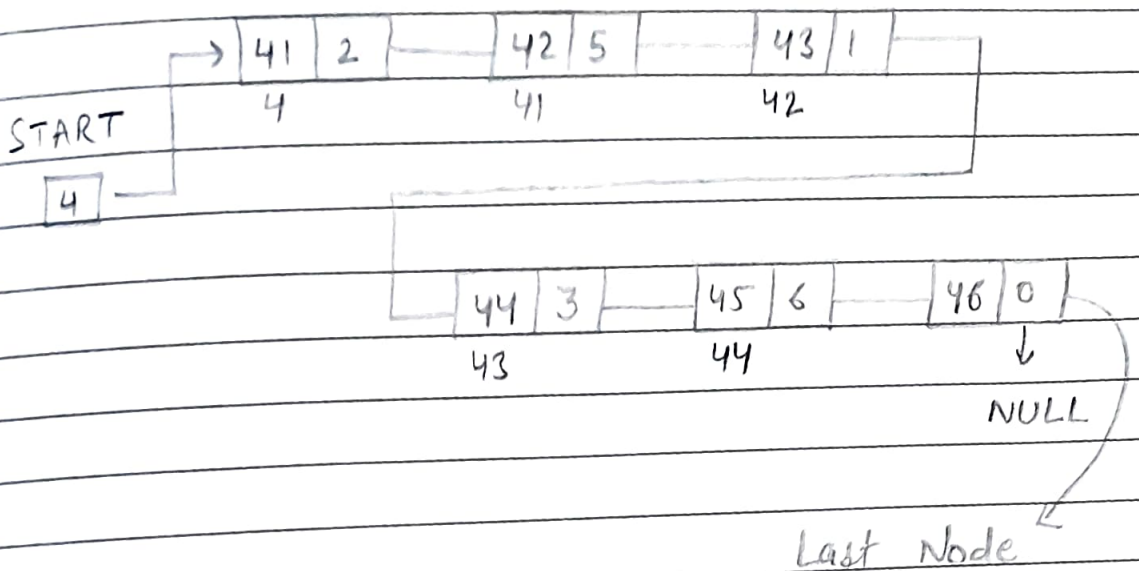 41 2 42 5 43 1
4 41 42
START
4
44 3 45 6 46 0
43 44
NULL
Last Node